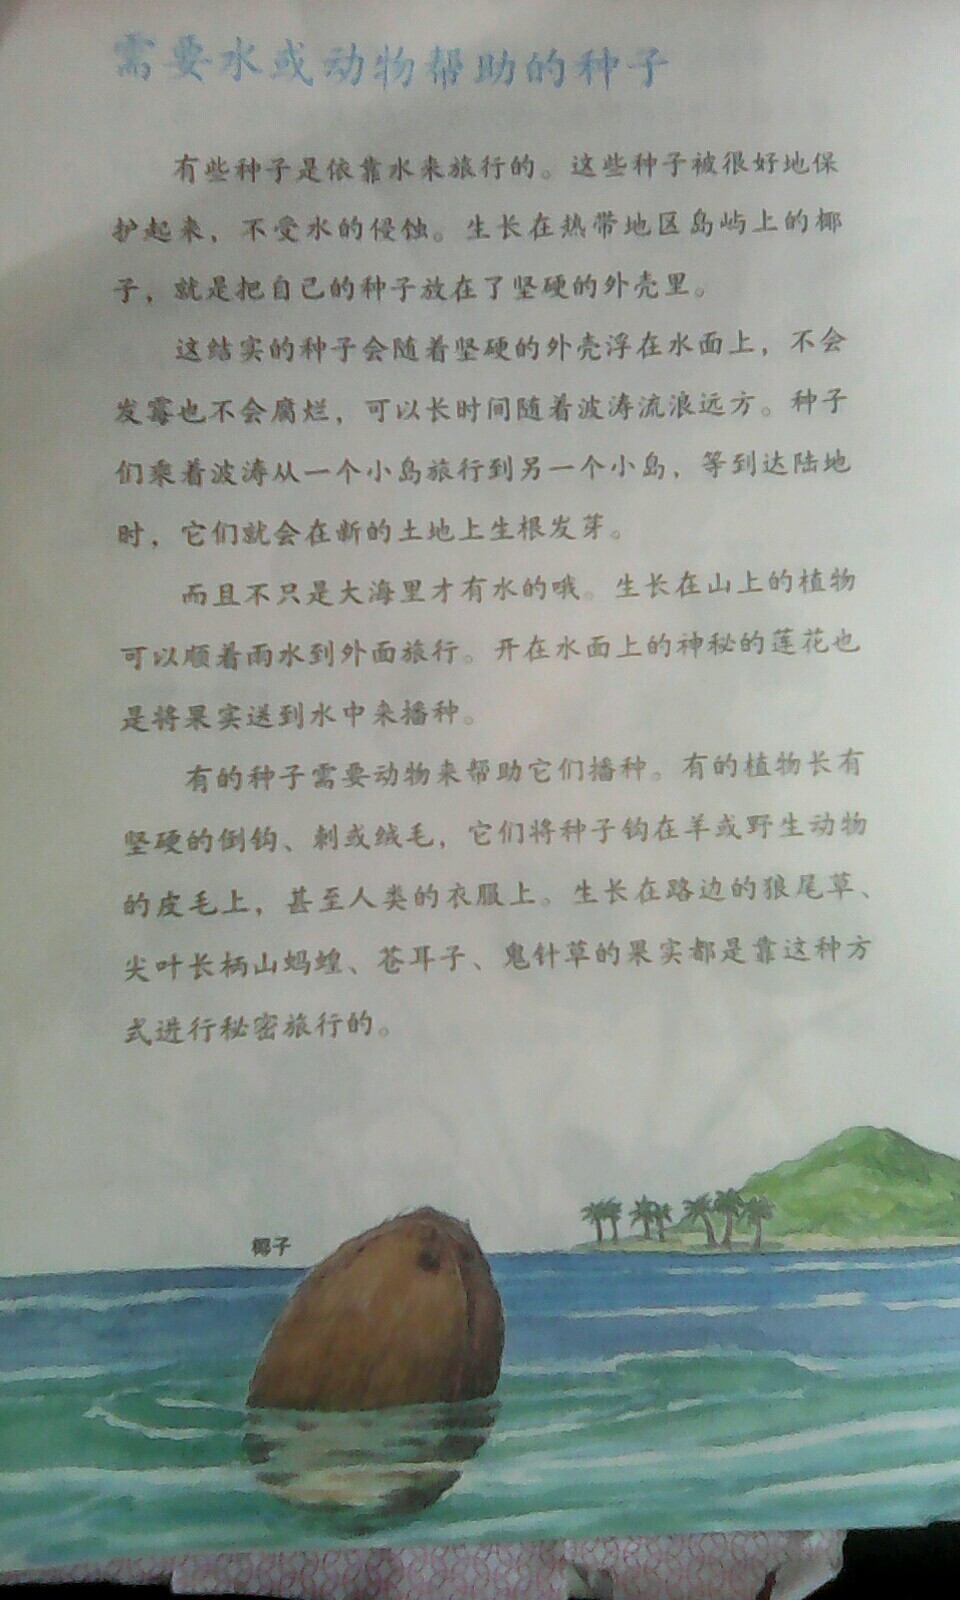 需要水或动物帮助的种子
有些种子是依靠水来旅行的。这些种子被很好地保
护起来，不受水的侵蚀。生长在热带地区岛屿上的椰
子，就是把自己的种子放在了坚硬的外壳里。
这结实的种子会随着坚硬的外壳浮在水面上，不会
发霉也不会腐烂，可以长时间随着波涛流浪远方。种子
们乘着波涛从一个小岛旅行到另一个小岛，等到达陆地
时，它们就会在新的土地上生根发芽。
而且不只是大海里才有水的哦。生长在山上的植物
可以顺着雨水到外面旅行。开在水面上的神秘的莲花也
是将果实送到水中来播种。
有的种子需要动物来帮助它们播种。有的植物长有
坚硬的倒钩、刺或绒毛，它们将种子钩在羊或野生动物
的皮毛上，甚至人类的衣服上。生长在路边的狼尾草、
尖叶长柄山蚂蝗、苍耳子、鬼针草的果实都是靠这种方
式进行秘密旅行的。
椰子